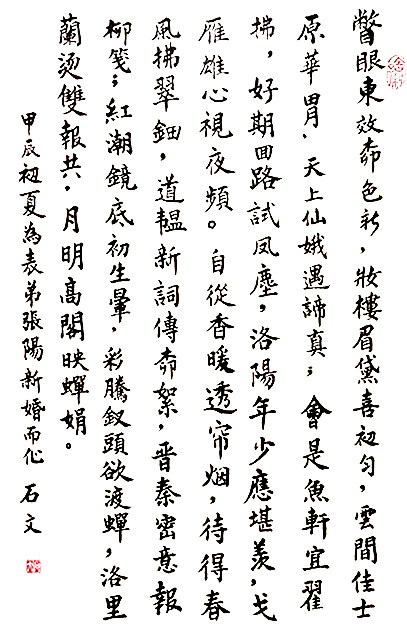 瞥眼東效色新，妝樓眉黛喜初勻，雲間佳士
原華胄、天上仙娥遇諦真；會是魚軒宜翟
拂，好期回路試凤塵，洛陽年少應堪羨，弋
雁雄心視夜頻。自從香暖透帘烟，待得春
風拂翠鈿，道韞新詞傳絮，晋秦密意報
柳箋；紅潮鏡底初生暈，彩騰釵頭欲渡蟬，洛里
蘭燙雙報共，月明高閣映蟬娟。
甲辰初夏為表弟張陽新婚而作 石文